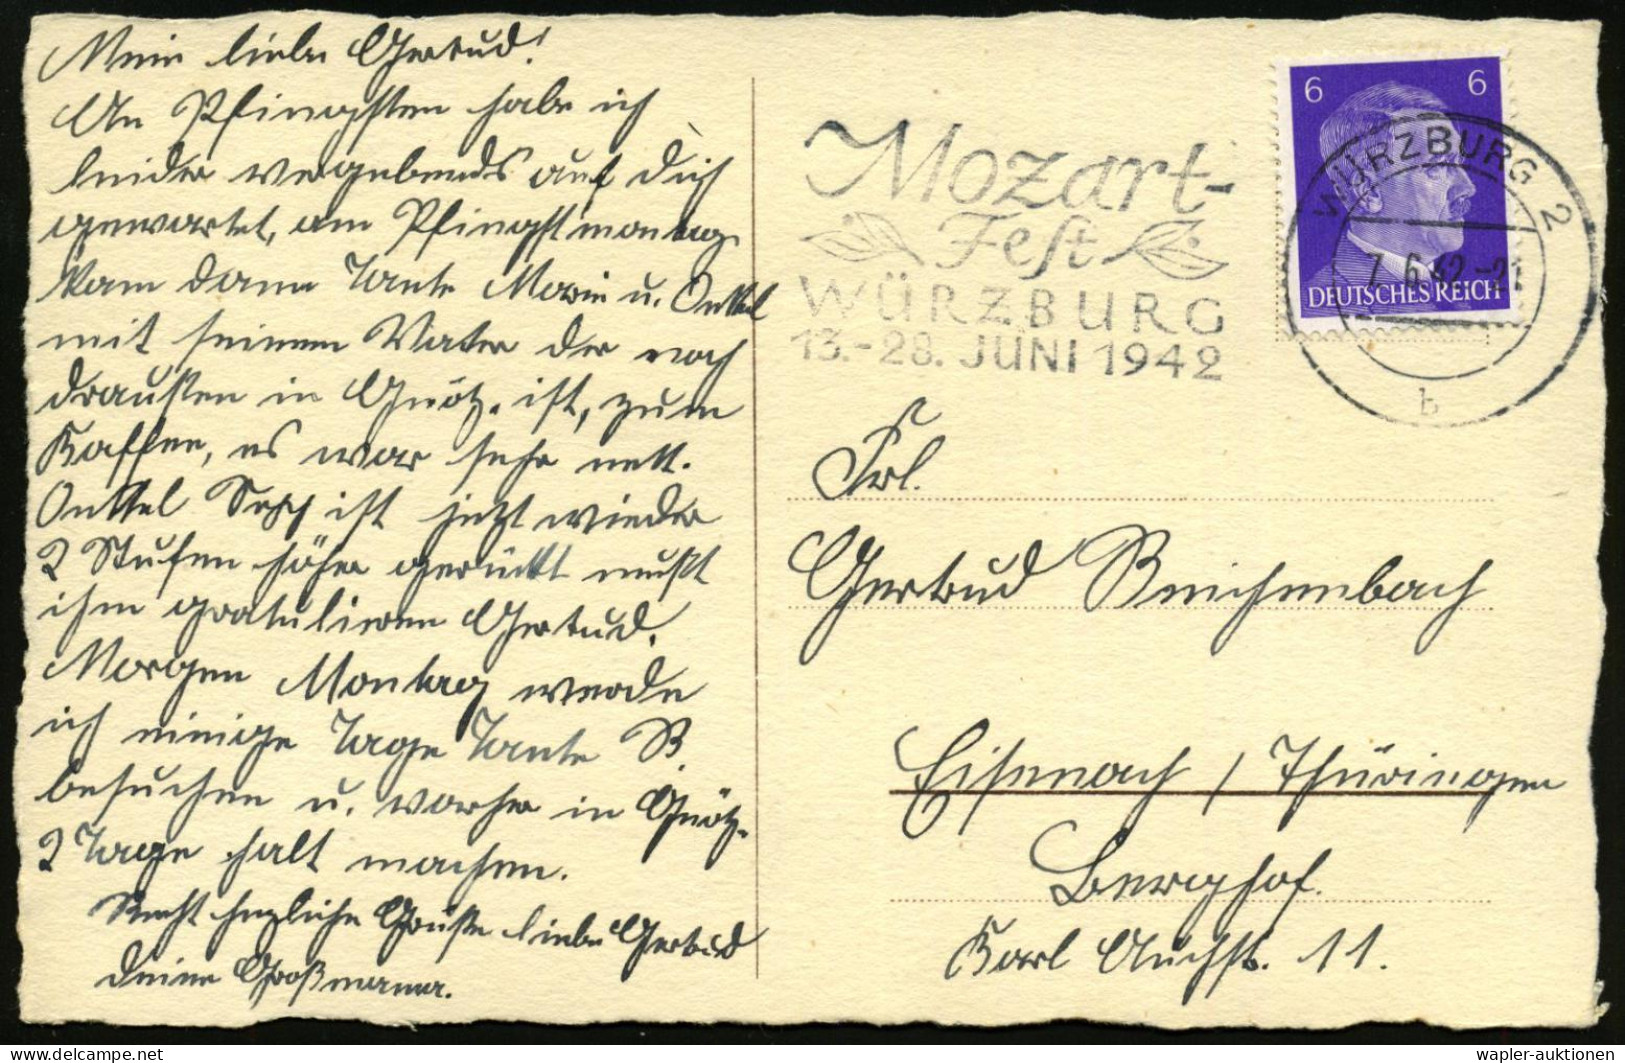 Mein liebe Gertrud!
An Pfingsten habe ich
leider vergebends auf dich
gewartet, am Pfingstmontag
kam dann Tante Marie u. Onkel
mit seinem Vater der noch
draußen in Gnötz. ist, zum
Kaffee, es war sehr nett.
Onkel Sepp ist jetzt wieder
2 Stufen höher gerückt mußt
ihm gratulieren Gertrud.
Morgen Montag werde
ich einige Tage Tante B.
besuchen u. vorher in Gnötz.
2 Tage halt machen.
Recht herzliche Grüße liebe Gertrud
deine Großmama.
Mozart-
Fest
WÜRZBURG
13.-28. JUNI 1942
6 6
DEUTSCHES REICH
WÜRZBURG 2
7.6.42-21
b
Frl.
Gertrud Reichenbach
Eisenach / Thüringen
Berghof.
Karl 11.
wapler-auktionen